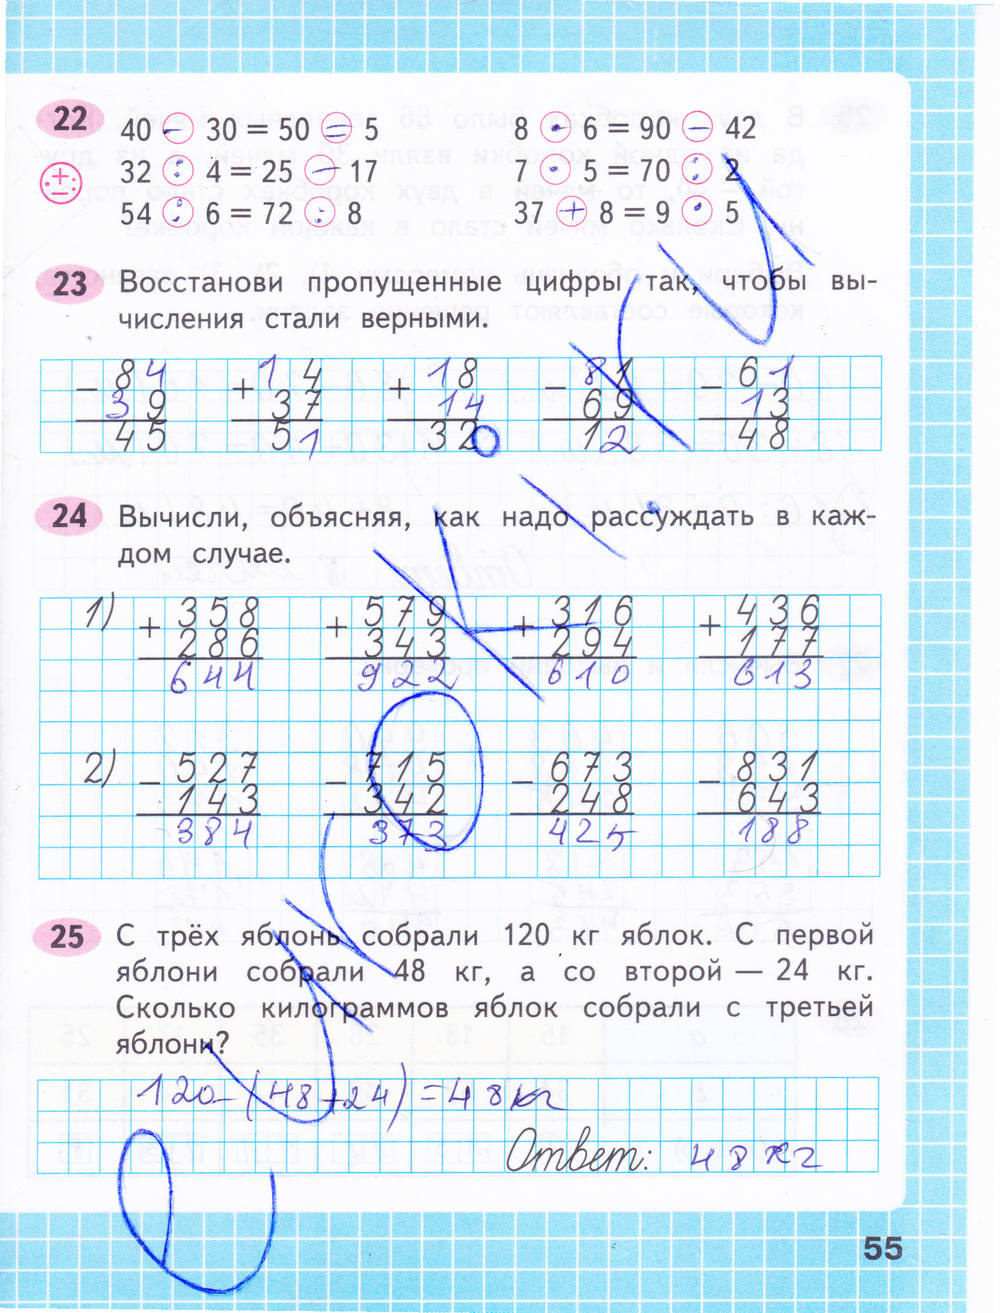 22
40 – 30 = 50 = 5
8 · 6 = 90 – 42
32 : 4 = 25 – 17
7 · 5 = 70 : 2
54 : 6 = 72 : 8
37 + 8 = 9 · 5
23 Восстанови пропущенные цифры так, чтобы вы-
числения стали верными.
– 84 + 14 + 18 – 81 – 61
39 37 14 69 13
45 51 32 12 48
24 Вычисли, объясняя, как надо рассуждать в каж-
дом случае.
1) + 358 + 579 + 316 + 436
286 343 294 177
644 922 610 613
2) – 527 – 715 – 673 – 831
143 342 248 643
384 373 425 188
25 С трёх яблонь собрали 120 кг яблок. С первой
яблони собрали 48 кг, а со второй — 24 кг.
Сколько килограммов яблок собрали с третьей
яблони?
120 – (48+24) = 48 кг
Ответ: 48 кг
55